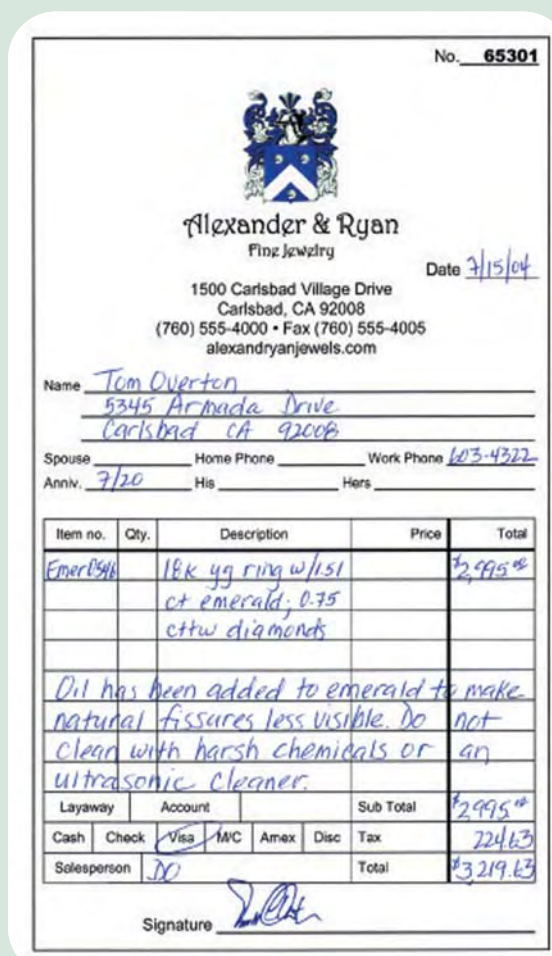 No. 65301
Alexander & Ryan
Fine Jewelry
Date 7/15/04
1500 Carlsbad Village Drive
Carlsbad, CA 92008
(760) 555-4000 • Fax (760) 555-4005
alexandryanjewels.com
Name Tom Overton
5345 Armada Drive
Carlsbad CA 92008
Spouse Home Phone Work Phone 603-4322
Anniv. 7/20 His Hers
Item no. Qty. Description Price Total
Emer0546 18k yg ring w/1.51 $2,995.00
ct emerald; 0.75
cttw diamonds
Oil has been added to emerald to make
natural fissures less visible. Do not
clean with harsh chemicals or an
ultrasonic cleaner.
Layaway Account Sub Total $2995.00
Cash Check Visa M/C Amex Disc Tax 224.63
Salesperson DO Total $3,219.63
Signature